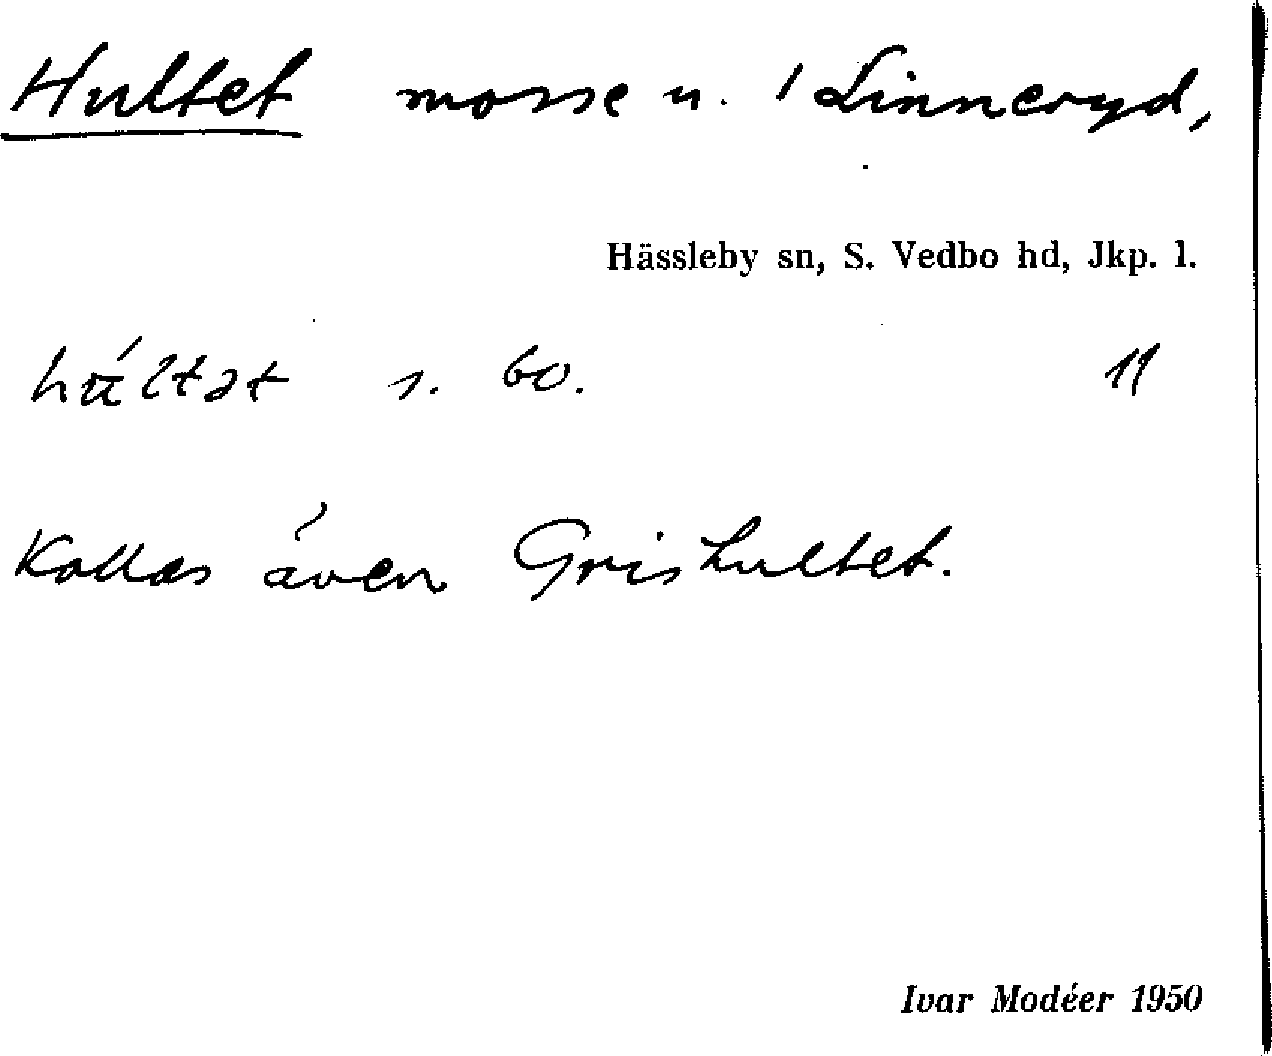 Hultet mosse u. / Linneryd,
Hässleby sn, S. Vedbo hd, Jkp. l.
s. bo. 11
Kallas även Grishultet.
Ivar Modéer 1950